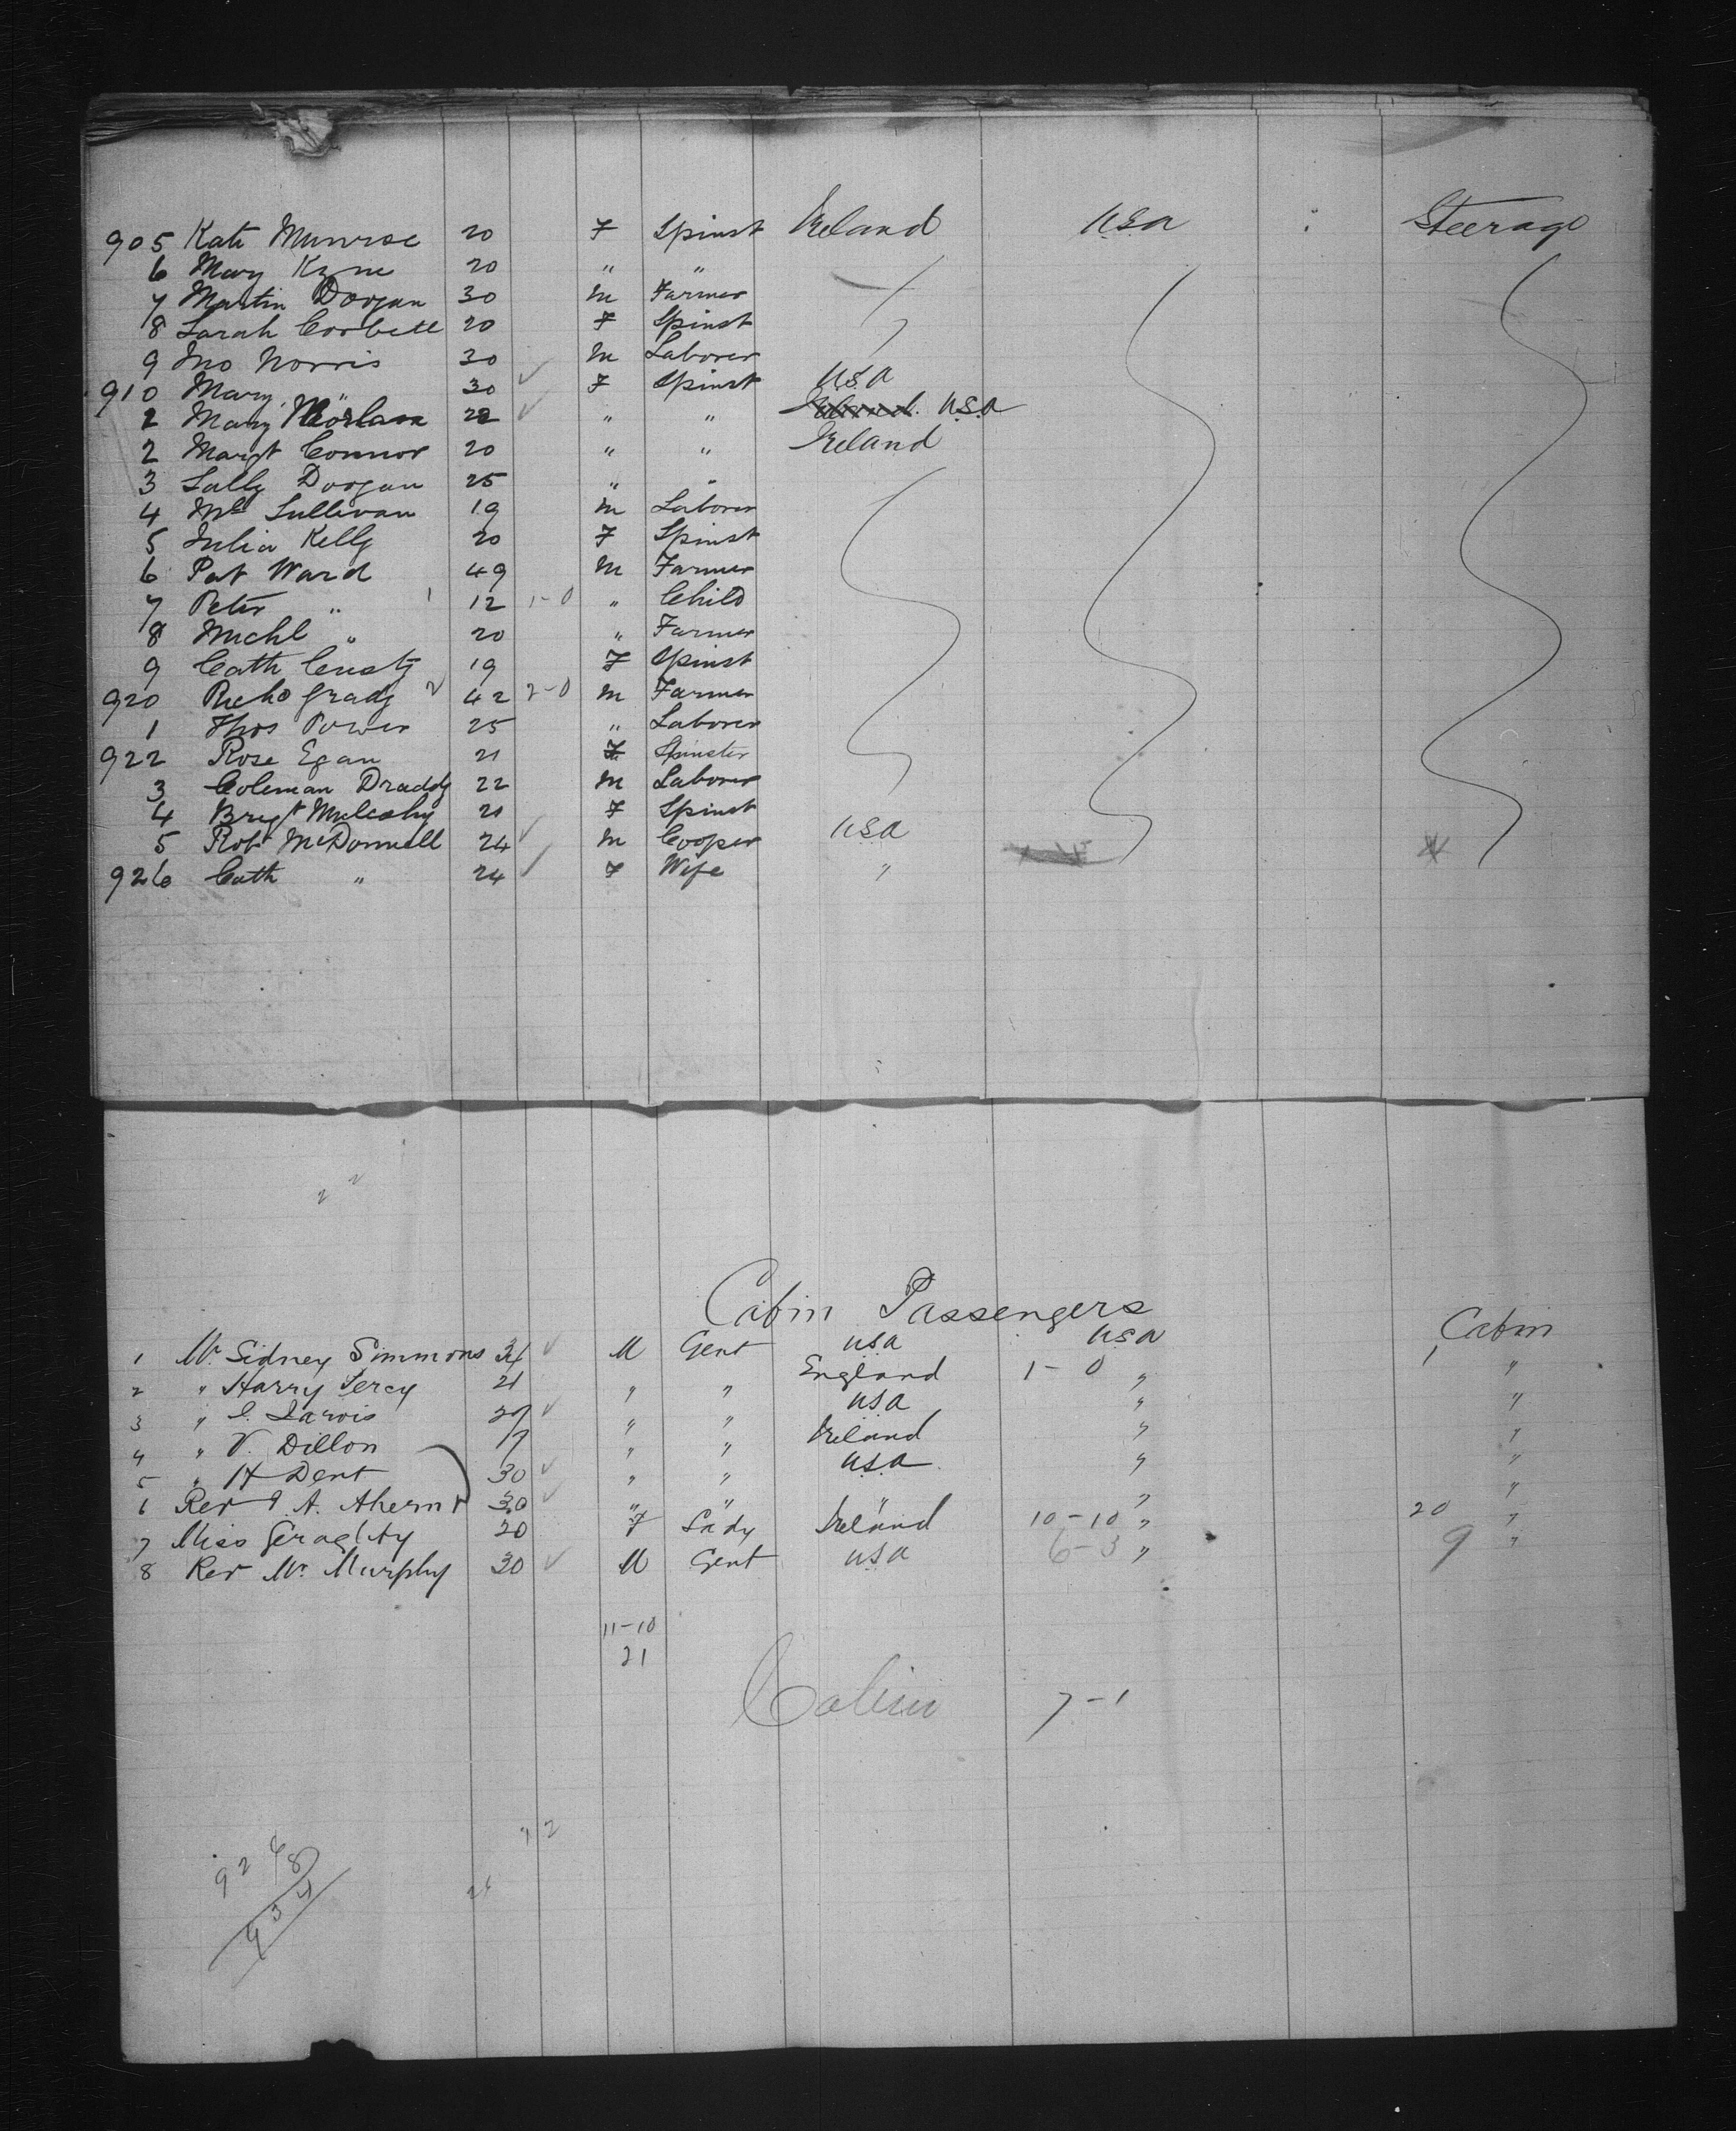 905 Kate Munroe 20 F Spinst Ireland USA Steerage
6 Mary Kyne 20 " "
7 Martin Doogan 30 M Farmer
8 Sarah Corbett 20 F Spinst
9 Jno Norris 30 M Laborer
910 Mary " 30 ✓ F Spinst USA
2 Mary 22 ✓ " " Ireland USA
2 Margt Connor 20 " " Ireland
3 Sally Doogan 25 " "
4 Ml Sullivan 19 M Laborer
5 Julia Kelly 20 F Spinst
6 Pat Ward 49 M Farmer
7 Peter " 1 12 1-0 " Child
8 Michl " 20 " Farmer
9 Cath 19 F Spinst
920 Richd Grady 2 42 2-0 M Farmer
1 Thos Power 25 " Laborer
922 Rose Egan 21 F Spinster
3 Coleman Draddy 22 M Laborer
4 Brigt Mulcahy 21 F Spinst
5 Robt McDonnell 24 ✓ M Cooper USA
926 Cath " 24 ✓ F Wife "
Cabin Passengers
1 Mr. Sidney Simmons ✓ M Gent USA USA Cabin
2 " Harry Percy 21 " " England 1-0 " 1 "
3 " Jarvis ✓ " " USA " "
4 " V. Dillon 17 " " Ireland " "
5 " H Dent 30 ✓ " " USA " "
6 Rev A. Ahern 30 ✓ " " " " "
7 Miss Geraghty 20 F Lady Ireland 10-10 " 20 "
8 Rev Mr. Murphy 30 ✓ M Gent USA 6-3 " 9 "
11-10
21
Cabin 7-1
926
8
934